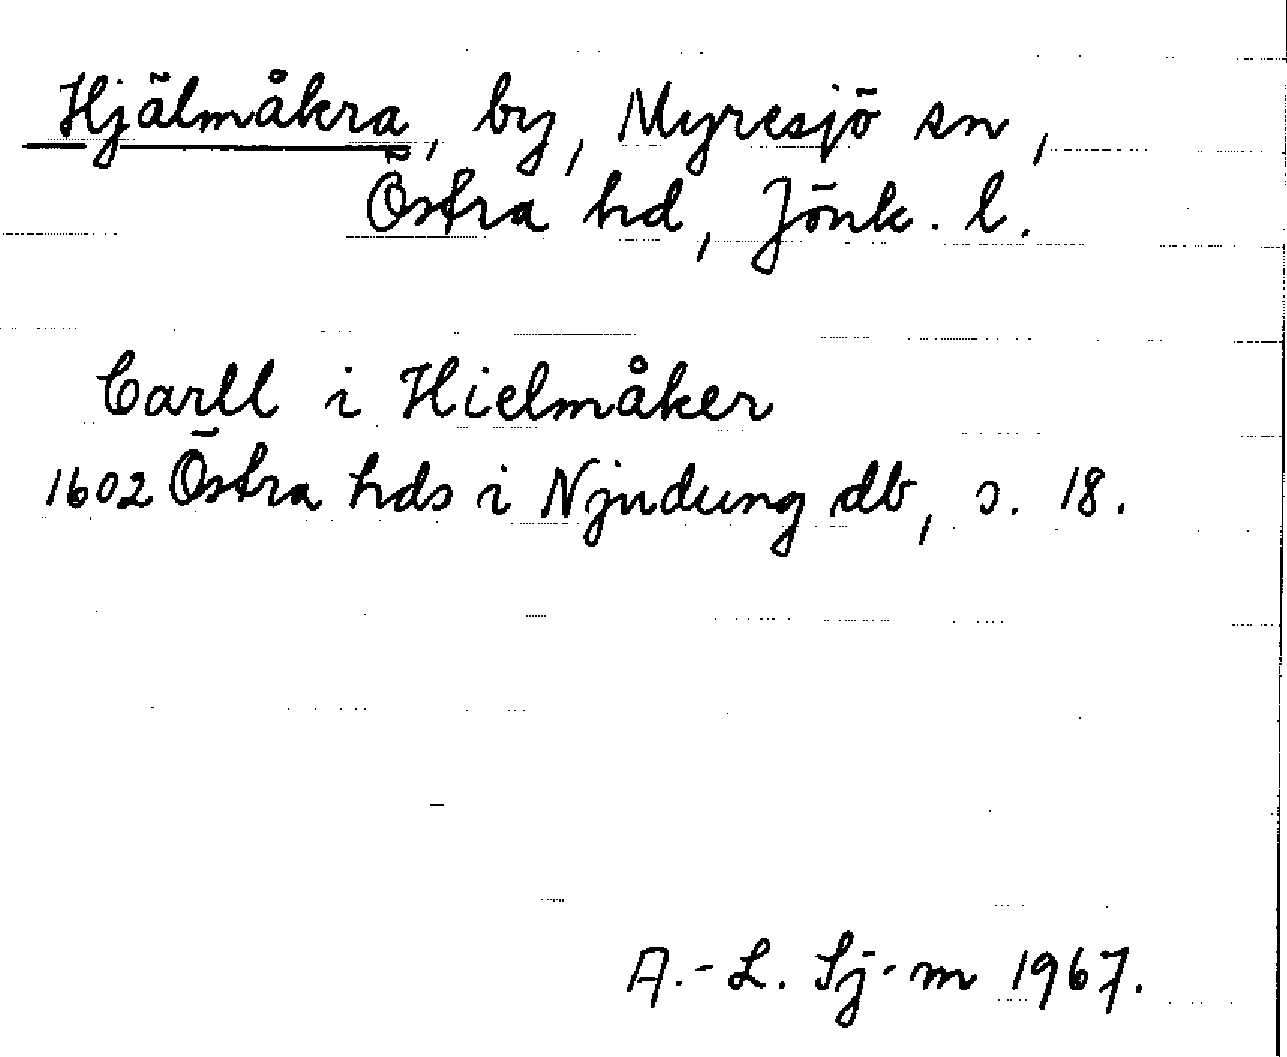 Hjälmåkra, by, Myresjö sn,
Östra hd, Jönk. l.
Carll i Hielmåker
1602 Östra hds i Njudung db, s. 18.
A.-L. Sj-m 1967.